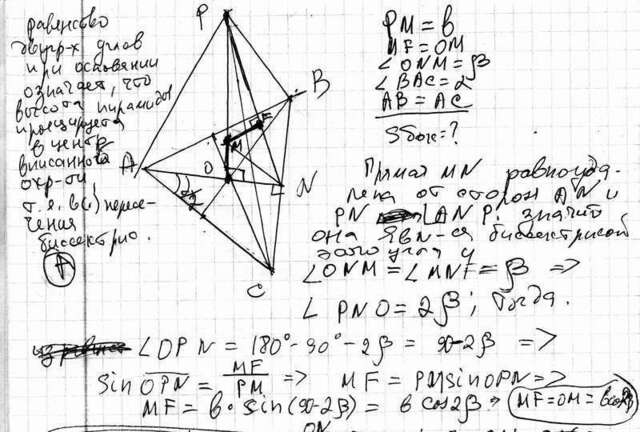 равенство
двугр-х углов
при основании
означает, что
высота пирамиды
проецируется
в центр
вписанной
окр-ти,
т.е. в(·) пересе-
чения
биссектрис.
P
B
M
F
A
O
N
C
PM = b
MF = OM
∠ONM = β
∠BAC = α
AB = AC
Sбок = ?
Прямая MN равноуда-
лена от сторон AN и
PN ∠ANP, значит
она явл-ся биссектрисой
этого угла и
∠ONM = ∠MNF = β =>
∠PNO = 2β; Тогда.
∠OPN = 180° - 90° - 2β = 90-2β =>
sin OPN = MF/PM => MF = PM sin OPN =>
MF = b · sin(90-2β) = b cos2β
MF = OM = b cos2β
ON